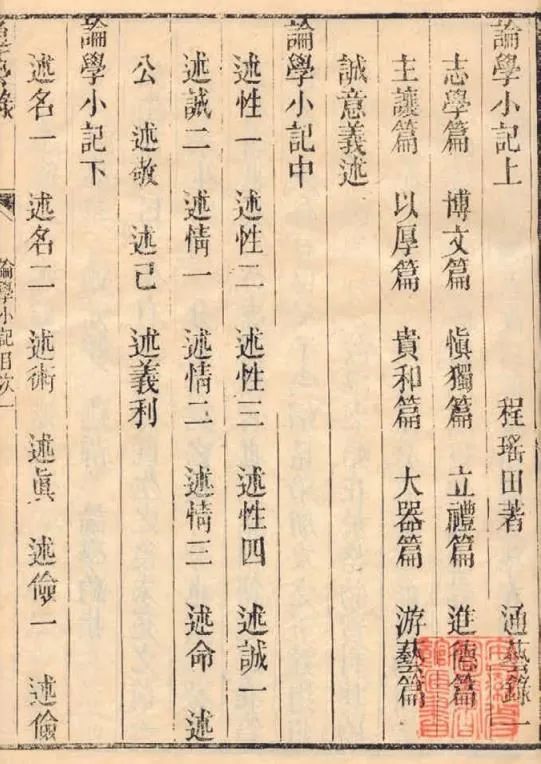 論學小記上 程瑤田著 通藝錄一
志學篇 博文篇 愼獨篇 立禮篇 進德篇
主讓篇 以厚篇 貴和篇 大器篇 游藝篇
誠意義述
論學小記中
述性一 述性二 述性三 述性四 述誠一
述誠二 述情一 述情二 述情三 述命 述
公 述敬 述己 述義利
論學小記下
述名一 述名二 述術 述眞 述儉一 述儉
通藝錄 論學小記目次一